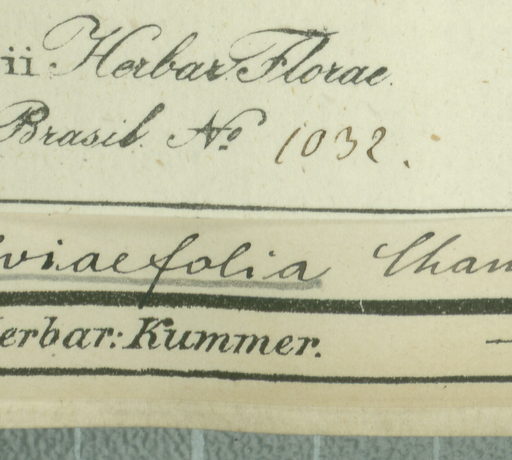 ii Herbar. Florae
Brasil. No. 1032.
viaefolia Cham
erbar: Kummer. —